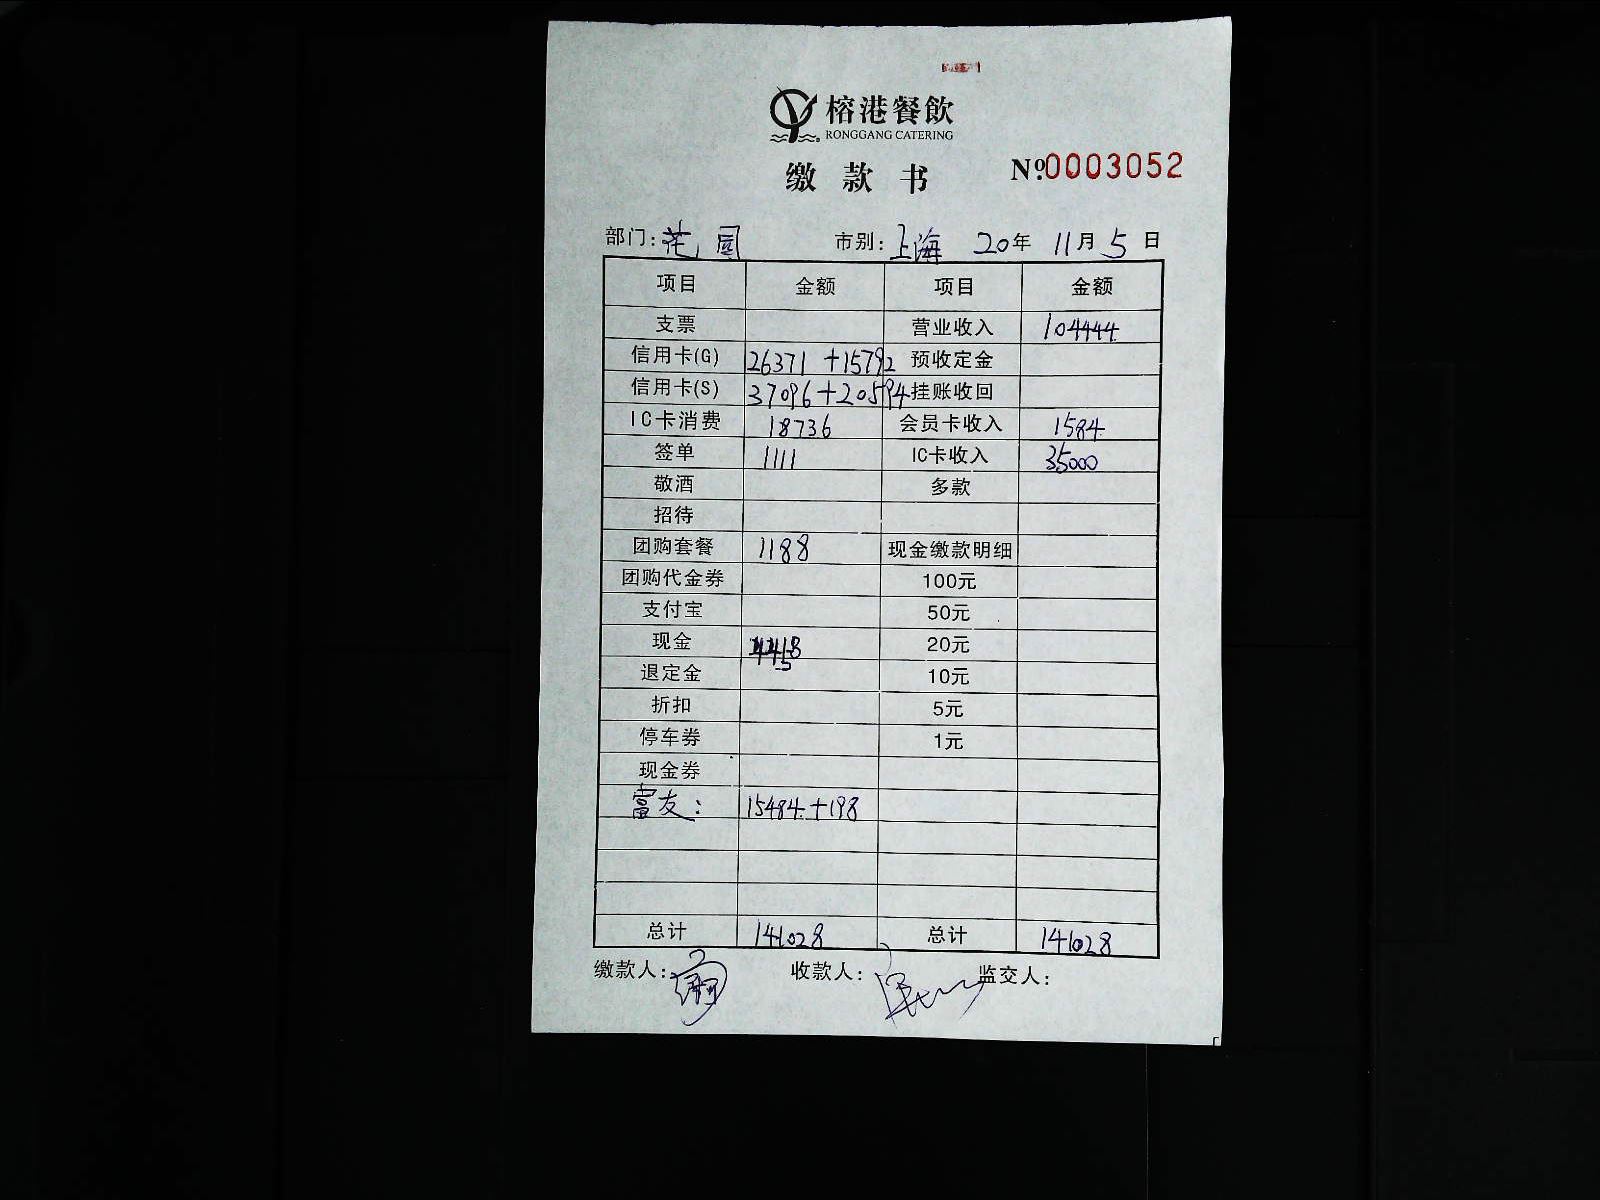 榕港餐飲
RONGGANG CATERING
缴款书 Nº:0003052
部门:花园 市别:上海 20年 11月 5日
项目 金额 项目 金额
支票 营业收入 104444
信用卡(G) 26371+15792 预收定金
信用卡(S) 37096+20594 挂账收回
IC卡消费 18736 会员卡收入 1584
签单 1111 IC卡收入 35000
敬酒 多款
招待
团购套餐 1188 现金缴款明细
团购代金券 100元
支付宝 50元
现金 20元
退定金 10元
折扣 5元
停车券 1元
现金券
富友: 15484+198
总计 141028 总计 141028
缴款人: 收款人: 监交人: